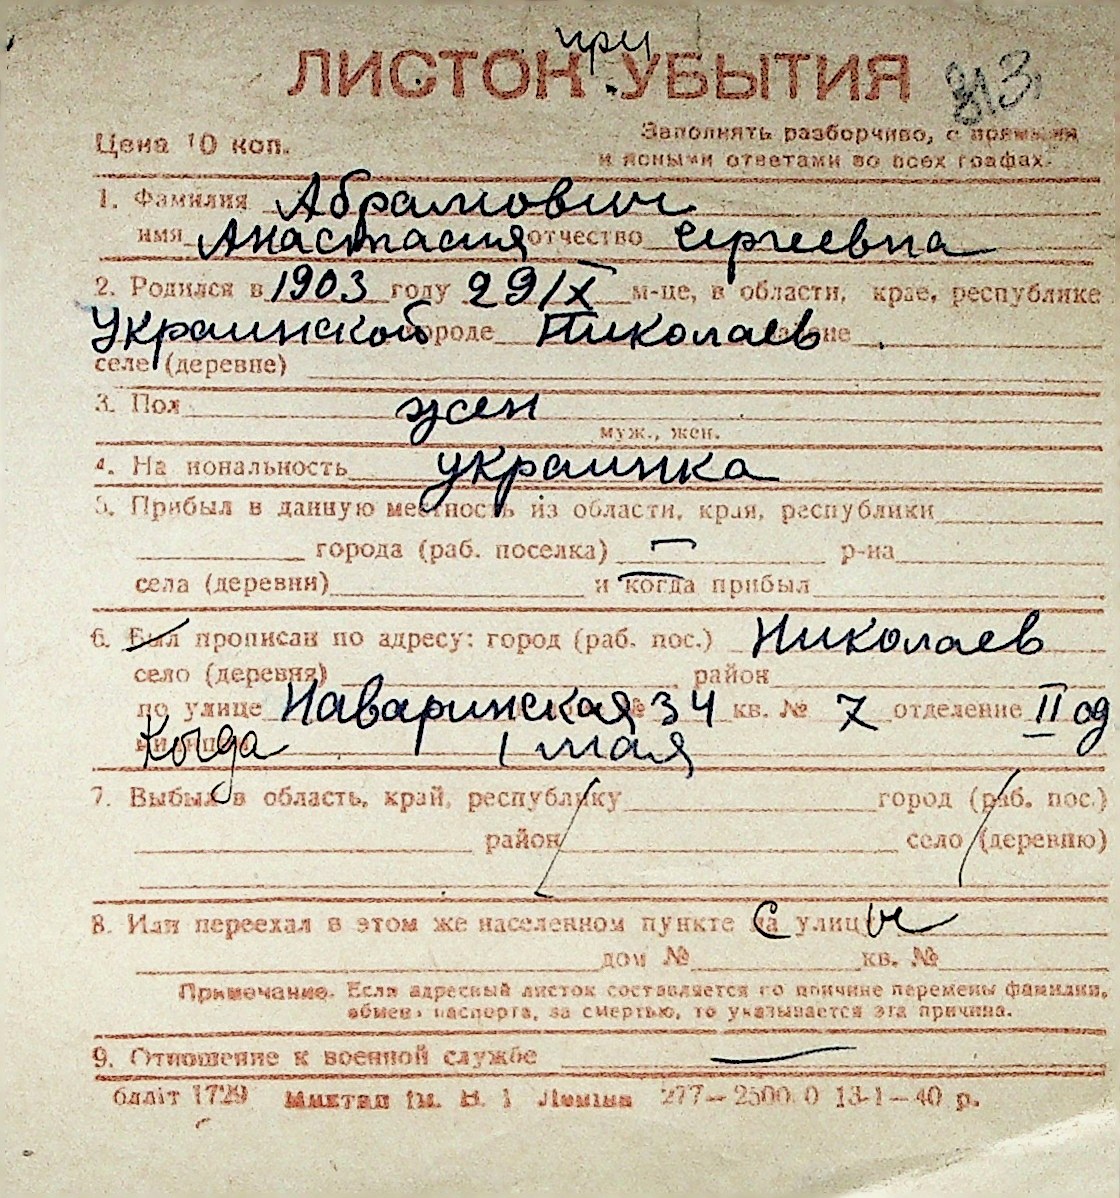 при
ЛИСТОК УБЫТИЯ
313
Цена 10 коп. Заполнять разборчиво, с прямыми
и ясными ответами во всех графах.
1. Фамилия Абрамович
имя Анастасия отчество Сергеевна
2. Родился в 1903 году 29/X м-це, в области, крае, республике
Украинской городе Николаев районе
селе (деревне)
3. Пол жен
муж., жен.
4. Национальность украинка
5. Прибыл в данную местность из области, края, республики
города (раб. поселка) — р-на
села (деревни) и когда прибыл
6. Был прописан по адресу: город (раб. пос.) Николаев
село (деревня) район
по улице Наваринская № 34 кв. № 7 отделение II од
милиции Когда 1 мая
7. Выбыл в область, край, республику город (раб. пос.)
район село (деревню)
8. Или переехал в этом же населенном пункте на с улицы
дом № кв. №
Примечание. Если адресный листок составляется по причине перемены фамилии,
обмена паспорта, за смертью, то указывается эта причина.
9. Отношение к военной службе —
облліт 1729 Миктип ім. В. І Леніна 277—2500.0 13-1—40 р.